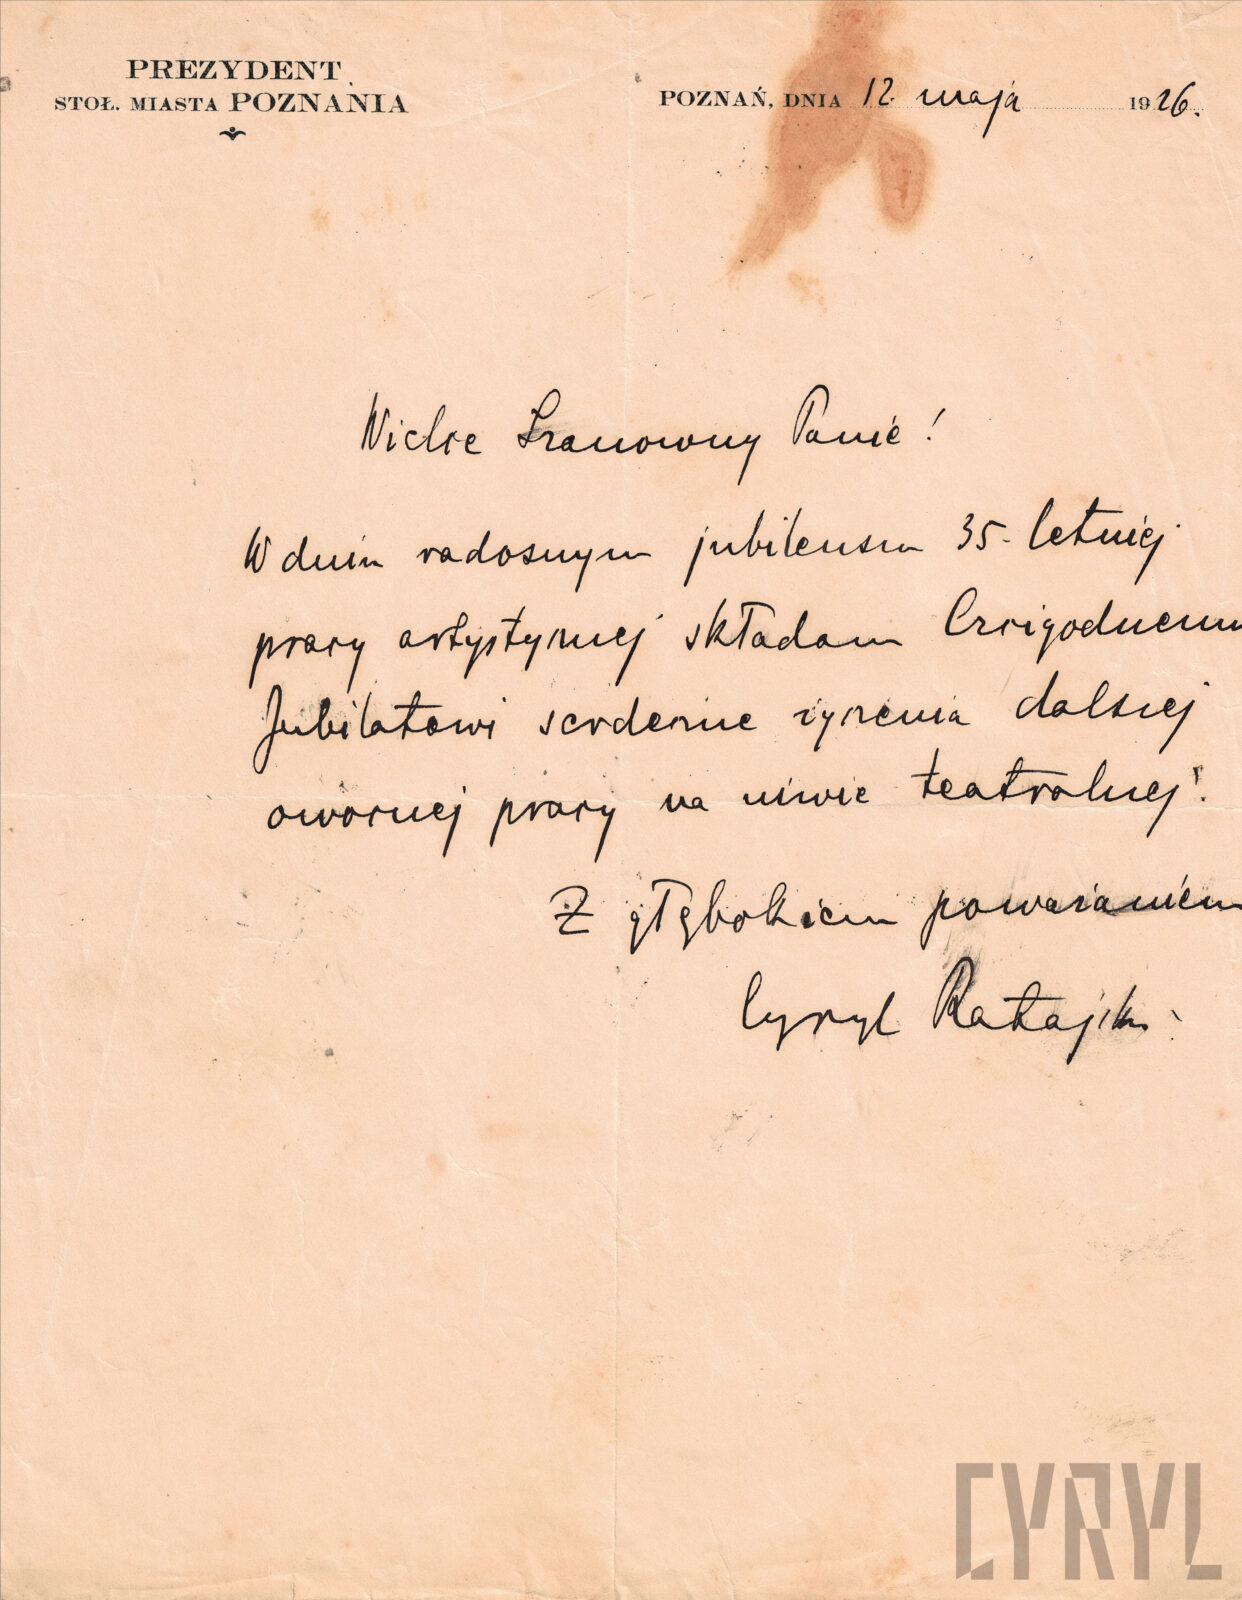 PREZYDENT
STOŁ. MIASTA POZNANIA
POZNAŃ, DNIA 12. maja 1926.
Wielce Szanowny Panie!
W dniu radosnym jubileuszu 35-letniej
pracy artystycznej składam Czcigodnemu
Jubilatowi serdeczne życzenia dalszej
owocnej pracy na niwie teatralnej!
Z głębokiem poważaniem
Cyryl Ratajski.
CYRYL